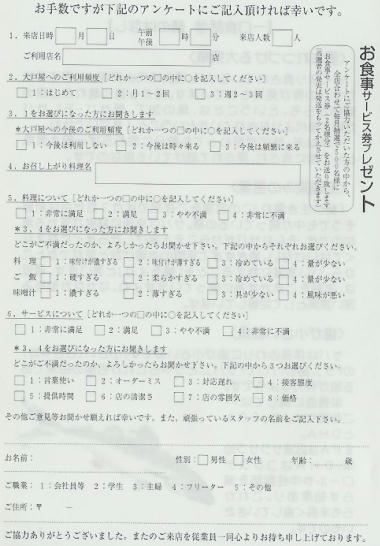 お手数ですが下記のアンケートにご記入頂ければ幸いです。
1、来店日時 □月□日 午前 午後 □時□分 来店人数 □人
ご利用店名 店
2、大戸屋へのご利用頻度「どれか一つの□の中に○を記入してください」
□1：はじめて □2：月1～2回 □3：週2～3回
3、1をお選びになった方にお聞きします
*大戸屋への今後のご利用頻度「どれか一つの□の中に○を記入してください」
□1：今後は利用しない □2：今後は時々来る □3：今後は頻繁に来る
4、お召し上がり料理名
5、料理について「どれか一つの□の中に○を記入してください」
□1：非常に満足 □2：満足 □3：やや不満 □4：非常に不満
*3、4をお選びになった方にお聞きします
どこがご不満だったのか、よろしかったらお聞かせ下さい。下記の中からそれぞれお選びください。
料理 □1：味付けが濃すぎる □2：味付けが薄すぎる □3：冷めている □4：量が少ない
ご飯 □1：硬すぎる □2：柔らかすぎる □3：冷めている □4：量が少ない
味噌汁 □1：濃すぎる □2：薄すぎる □3：具が少ない □4：風味が悪い
6、サービスについて「どれか一つの□の中に○を記入してください」
□1：非常に満足 □2：満足 □3：やや不満 □4：非常に不満
*3、4をお選びになった方にお聞きします
どこがご不満だったのか、よろしかったらお聞かせ下さい。下記の中から3つお選びください。
□1：言葉使い □2：オーダーミス □3：対応遅れ □4：接客態度
□5：提供時間 □6：店の清潔さ □7：店の雰囲気 □8：価格
その他ご意見等お聞かせ願えれば幸いです。また、頑張っているスタッフの名前をご記入下さい。
お名前： 性別：□男性 □女性 年齢：......歳
ご職業：1：会社員等 2：学生 3：主婦 4：フリーター 5：その他
ご住所：〒 －
ご協力ありがとうございました。またのご来店を従業員一同心よりお待ち申し上げております。
お食事サービス券プレゼント
アンケートにご協力いただいた方の中から、
全店合わせて毎月抽選で300名様に
お食事サービス券（2名様分）をお送り致します